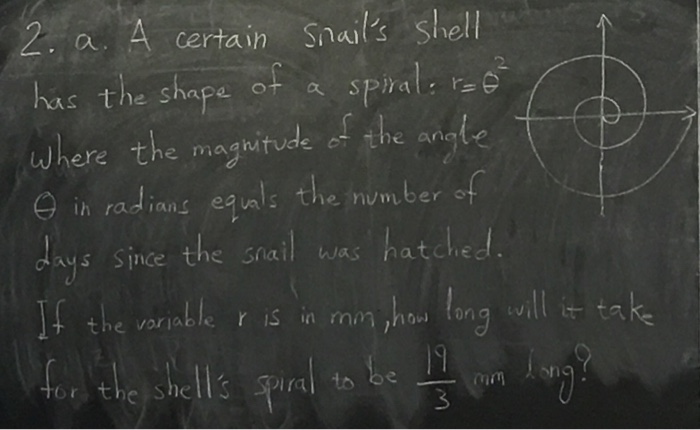 2. a. A certain snail's shell
has the shape of a spiral: r=θ²
where the magnitude of the angle
θ in radians equals the number of
days since the snail was hatched.
If the variable r is in mm, how long will it take
for the shell's spiral to be 19/3 mm long?